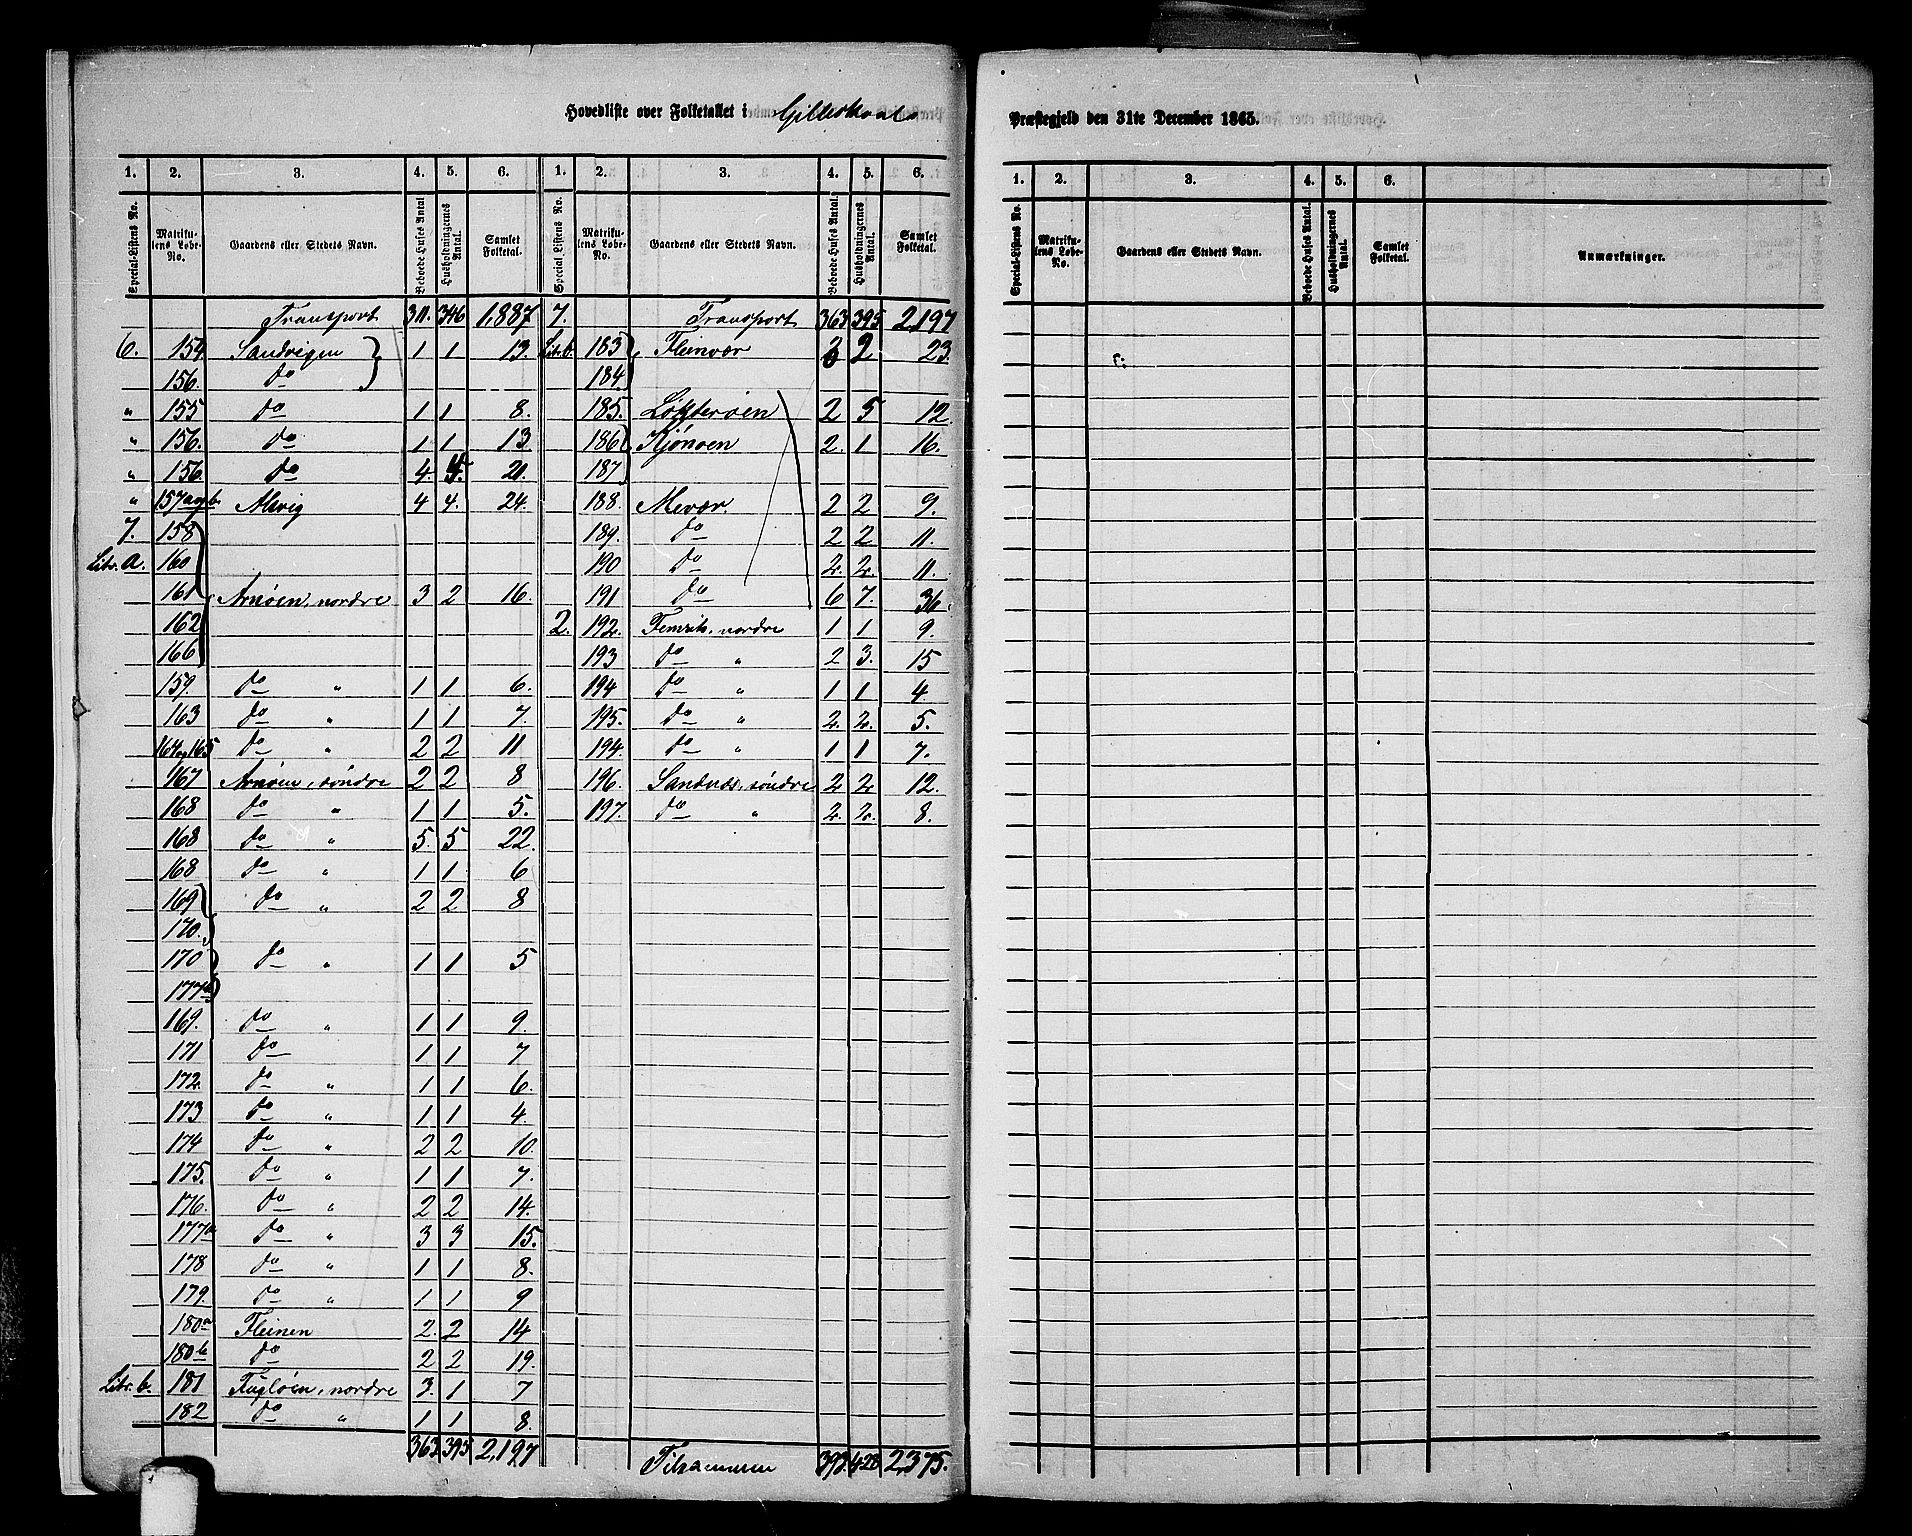 Hovedliste over Folketallet i Gilleskaal Præstegjeld den 31te December 1865.
1. 2. 3. 4. 5. 6. 1. 2. 3. 4. 5. 6.
Special-Listens No. Matrikulens Løbe-No. Gaardens eller Stedets Navn. Beboede Huses Antal Husholdningernes Antal. Samlet Folketal. Special Listens No. Matrikulens Løbe-No. Gaardens eller Stedets Navn. Beboede Huses Antal. Husholdningernes Antal. Samlet Folketal.
Transport 311. 346 1,887 7. Transport 363 395 2,197
6. 154. Sandvigen 1 1 13. Litr. b. 183 Fleinvær 2 23.
156. do 184
" 155 do 1 1 8. 185. Løkterøen 2 5 12.
" 156. do 1 1 13. 186 Kjønøen 2. 1 16.
" 156. do 4. 5. 21. 187
" 157a og b. Alsvig 4 4. 24. 188. Mevær. 2 2 9.
7. 158 189. do 2 2 11.
Litr. a. 160 190 do 2. 2. 11.
161 Arnøen, nordre 3 2 16. 191 do 6 7. 36.
162 2. 192. Femris, nordre 1 1 9.
166 193 do " 2 3. 15
159. do " 1 1 6. 194 do " 1 1 4.
163 do " 1 1 7. 195. do " 2. 2. 5.
164 og 165 do " 2 2 11 194. do " 1 1 7.
167 Arnøen, søndre 2 2 8 196. Sandnæs, søndre 2 2 12.
168 do " 1 1 5. 197. do " 2. 2. 8.
168 do " 5. 5 22.
168 do " 1 1 6
169 do " 2 2 8
170.
170 do " 1 1 5
177b
169. do " 1 1 9.
171 do 1 1 7
172. do " 1 1 6.
173 do " 1 1 4.
174 do " 2 2 10.
175. do " 1 1 7.
176. do " 2 2 14.
177a do " 3 3 15.
178 do " 1 1 8.
179. do " 1 1 9
180a Fleinen 2. 2 14
180b do 2 2 19.
Litr. b. 181 Fugløen, nordre 3. 1 7
182 do " 1 1 8.
363. 395. 2,197 Tilsammen 393. 428 2,375.
1. 2. 3. 4. 5. 6.
Special-Listens No. Matrikulens Løbe-No. Gaardens eller Stedets Navn. Beboede Huses Antal. Husholdningernes Antal. Samlet Folketal. Anmærkninger.